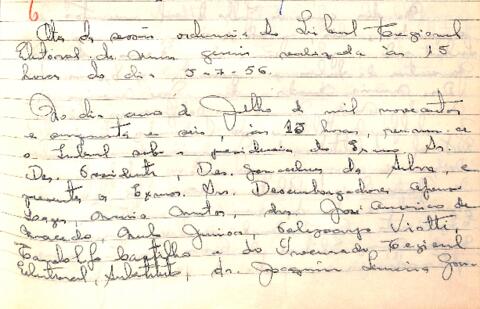 6
Ata da sessão ordinária do Tribunal Regional
Eleitoral de Minas Gerais realizada às 15
horas do dia 5-7-56.
Ao dia, cinco de Julho de mil novecentos
e cinquenta e seis, às 15 horas, reuniu-se
o Tribunal sob a presidência do Exmo. Sr.
Des. Presidente, Des. Gonçalves da Silva, e
presentes os Exmos. Srs. Desembargadores Afonso
Lages, Santos, drs. José Américo de
Macedo, Paulo Junior, Viotti,
Tancredo Castilho e do Procurador Regional
Eleitoral, Substituto, dr. Joaquim Ferreira Gon-